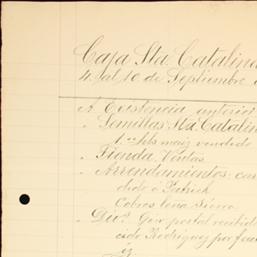 Caja Sta Catalina
4 al 10 de Septiembre
A Existencia anterior
" Semillas Sta Catalin
1 " hls maiz vendido
" Tienda Ventas
" Arrendamientos: can
dido a Patrick
Cobros leña
" Div.s Giro postal recibido
cide Rodriguez por